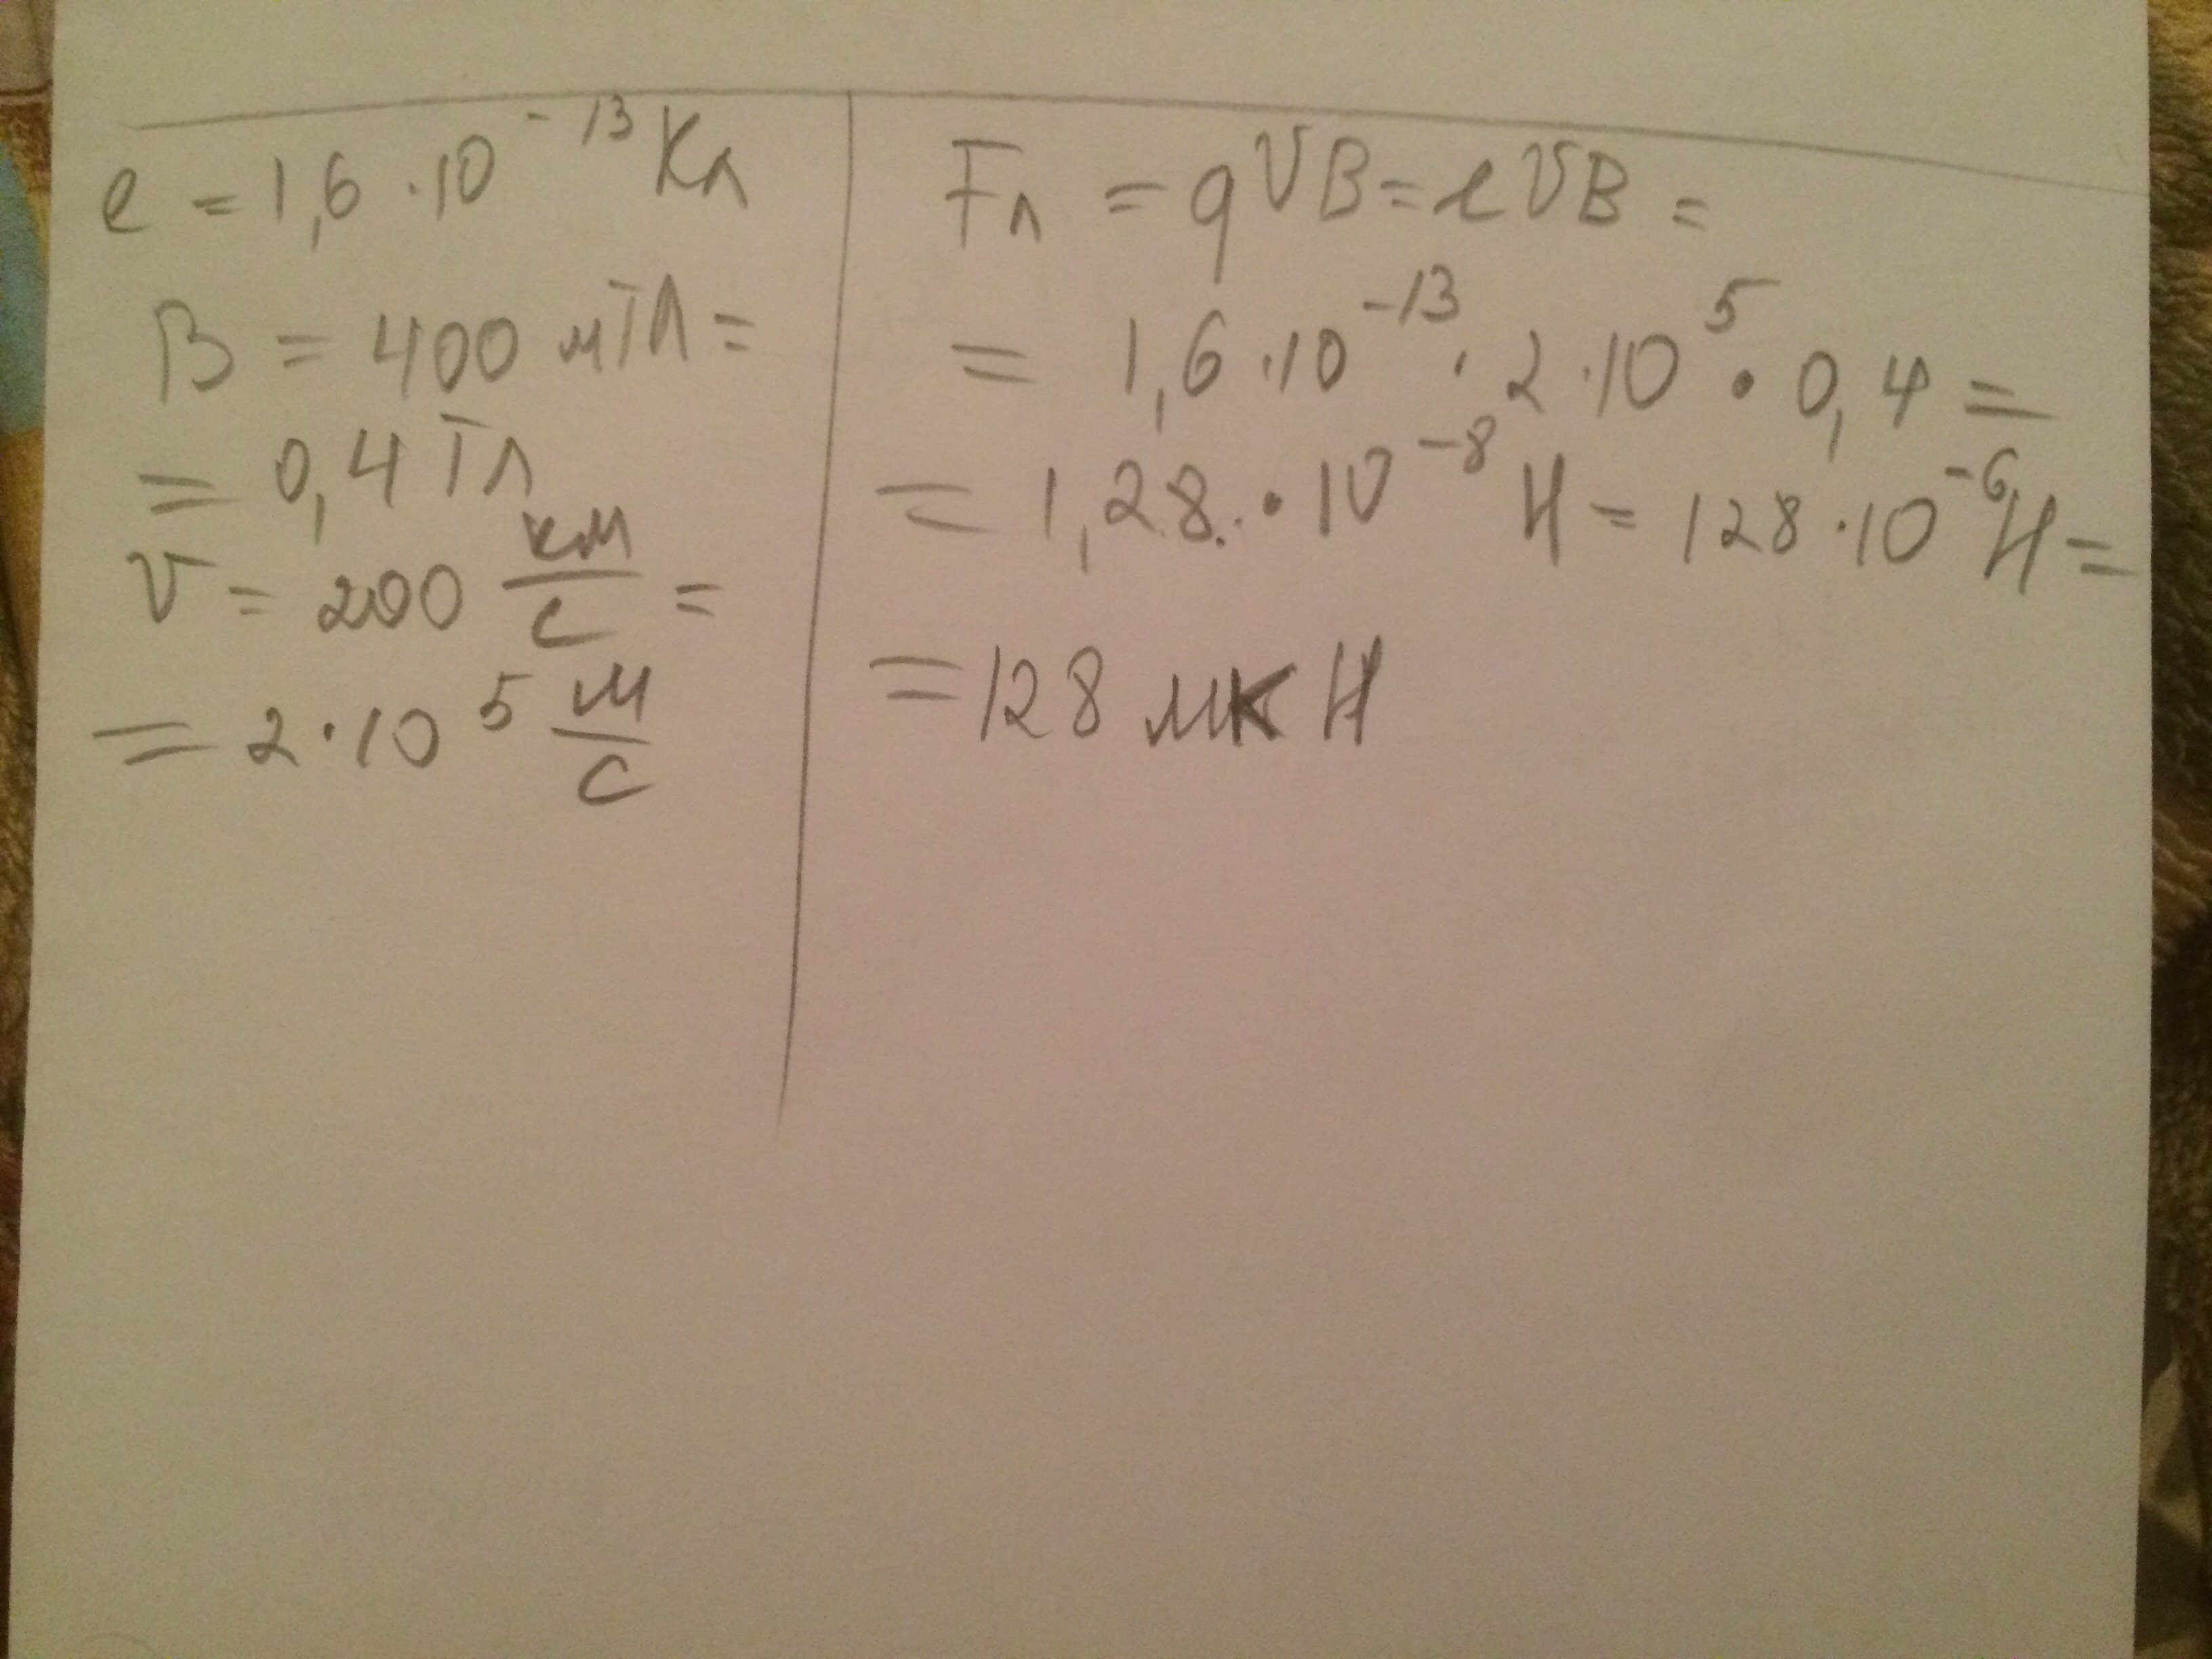 e = 1,6 · 10⁻¹³ Кл
B = 400 мТл =
= 0,4 Тл
V = 200 км/с =
= 2 · 10⁵ м/с
Fл = qVB = eVB =
= 1,6 · 10⁻¹³ · 2 · 10⁵ · 0,4 =
= 1,28 · 10⁻⁸ Н = 128 · 10⁻⁶ Н =
= 128 мкН